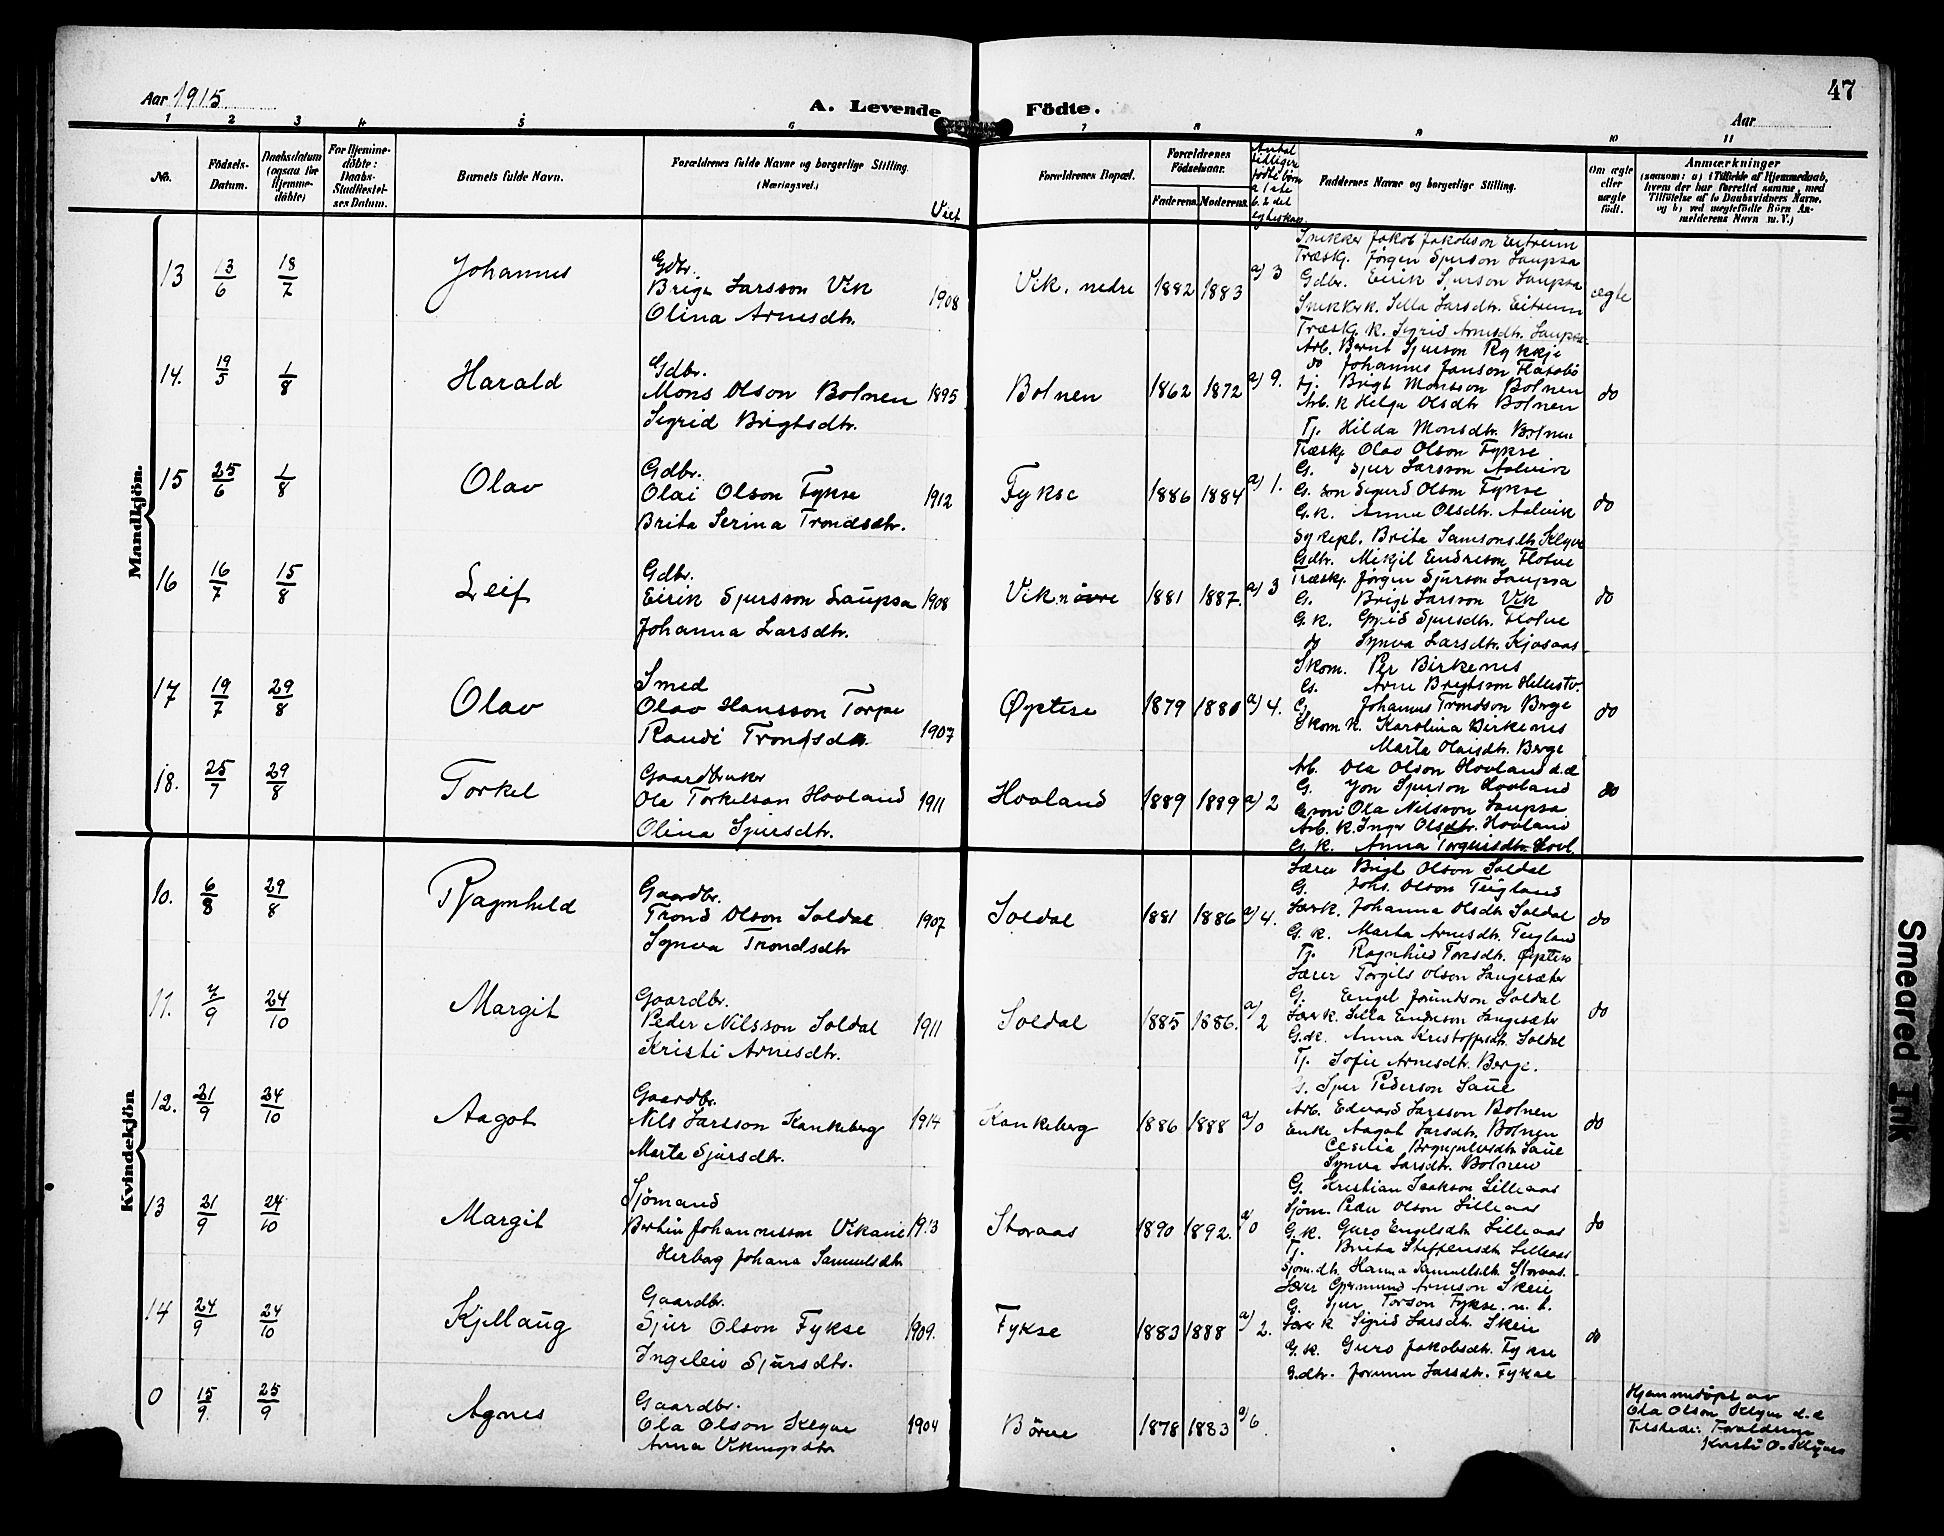 47
Aar 1915
A. Levende Födte.
Aar
1 2 3 4 5 6 7 8 9 10 11
No.
Födsels-Datum.
Daabsdatum (ogsaa for Hjemme-döbte)
For Hjemme-döbte: Daabs-Stadfæstel-ses Datum.
Barnets fulde Navn.
Forældrenes fulde Navne og borgerlige Stilling (Næringsvei.)
Viet
Forældrenes Bopæl.
Forældrenes Födselsaar.
Faderens. Moderens.
Antal tidligere fødte børn
Faddernes Navne og borgerlige Stilling.
Om ægte eller uægte födt.
Anmærkninger
(saasom: a) i Tilfælde af Hjemmedaab, hvem der har forrettet samme, med Tilföielse af to Daabsvidners Navne, og b) ved uægtefödte Börn An-melderens Navn m. V.)
Mandkjön.
13 13/6 18/7 Johannes
Gdbr.
Brigt Larsson Vik 1908
Olina Arnesdtr.
Vik, nedre 1882 1883 a) 3
Snikker Jakob Jakobson Eitreim
Træskj. Jørgen Sjurson Laupsa
Gdbr. Eirik Sjurson Laupsa
Snikkerk. Silla Larsdtr. Eitreim
Træskj. k. Sigrid Arnesdtr. Laupsa
ægte
14. 19/5 1/8 Harald
Gdbr.
Mons Olson Bolnen 1895
Sigrid Brigtsdtr.
Bolnen 1862 1872 a) 9.
Arb. Bernt Sjurson Rykkje
do Johannes Janson
Tj. Brigt Monsson Bolnen
Arb. k Helga Olsdtr Bolnen
Tj. Hilda Monsdtr. Bolnen
do
15 25/6 1/8 Olav
Gdbr.
Olai Olson Fykse 1912
Brita Serina Trondsdtr.
Fykse 1886 1884 a) 1.
Træskj Olav Olson Fykse
G. Sjur Larsson Aalvik
G. son Sigurd Olson Fykse
G. k. Anna Olsdtr. Aalvik
Sykepl. Brita Samsonsdtr Klyve
do
16 16/7 15/8 Leif
Gdbr.
Eirik Sjursson Laupsa 1908
Johanna Larsdtr.
Vik, nøvre 1881 1887. a) 3
Gdbr. Mikjil Eindreson Flotve
Træskj. Jørgen Sjurson Laupsa
G. Brigt Larsson Vik
G. k. Gyrid Sjursdtr. Flotve
do Synva Larsdtr. Kjosaas
do
17 19/7 29/8 Olav
Smed
Olav Hansson Torpe 1907
Randi Trondsdtr.
Øystese 1879 1880 a) 4.
Skom. Per Birkenes
G. Arne Brigtsson Hellestv.
G. Johannes Trondson Berge
Skom. k. Karolina Birkenes
Marta Olaisdtr. Berge
do
18. 25/7 29/8 Torkel
Gaardbruker
Ola Torkelson Hovland 1911
Olina Sjursdtr.
Hovland 1889 1889 a) 2
Arb. Ola Olson Hovland d.e
G. Jon Sjurson Hovland
G. son Ola Nilsson Laupsa
Arb. k. Inger Olsdtr. Hovland
G. k. Anna Torgeirsdtr. Hovl.
do
Kvindekjön
10. 6/8 29/8 Ragnhild
Gaardbr.
Trond Olson Soldal 1907
Synva Trondsdtr
Soldal 1881 1886 a) 4.
Lærer Brigt Olson Soldal
G. Johs. Olson Teigland
Lærk. Johanna Olsdtr Soldal
G. k. Marta Arnesdtr. Teigland
Tj. Ragnhild Torsdtr. Øystese
do
11. 7/9 24/10 Margit
Gaardbr.
Peder Nilsson Soldal 1911
Kristi Arnesdtr.
Soldal 1885 1886. a) 2
Lærer Torgils Olson Langesæter
G. Engel Jørundson Soldal
Lærk. Silla Eindreson Langesæter
G.k. Anna Kristoffersdtr. Soldal
Tj. Sofie Arnesdtr. Berge.
do
12. 21/9 24/10 Aagot
Gaardbr.
Nils Larsson Kankeberg 1914
Marta Sjursdtr.
Kankeberg 1886 1888 a) 0
G. Sjur Pederson Saue
Arb. Edvard Larsson Bolnen
Enke Aagot Larsdtr. Bolnen
Cesilia Brynjulvsdtr Saue
Synva Larsdtr. Bolnen
do
13 21/9 24/10 Margit
Sjömand
Bertin Johannesson Vikane 1913
Herborg Johana Samuelsdtr
Storaas 1890 1892. a) 0
G. Kristian Isakson Lilleaas
Sjöm. Peder Olson Lilleaas
G.k. Guro Engelsdtr. Lilleaas
Tj. Brita Steffensdtr. Lilleaas
Sjöm.dtr. Hanna Samuelsdtr. Storaas.
do
14 24/9 24/10 Kjellaug
Gaardbr.
Sjur Olson Fykse 1909.
Ingeleiv Sjursdtr.
Fykse 1883 1888 a) 2.
Lærer Germund Arneson Skeie
G. Sjur Torson Fykse, n. t.
Lærer k Sigrid Larsdtr. Skeie
G.k. Guro Jakobsdtr. Fykse
G.dtr. Jorunn Larsdtr. Fykse
do
0 15/9. 25/9 Agnes
Gaardbr.
Ola Olson Klyve 1904
Anna Vikingsdtr
Börve 1878 1883 a) 6.
Hjemmedøpt av
Ola Olson Klyve d.e
Tilstede: Foreldrene
Kristi O. Klyve
Smeared Ink